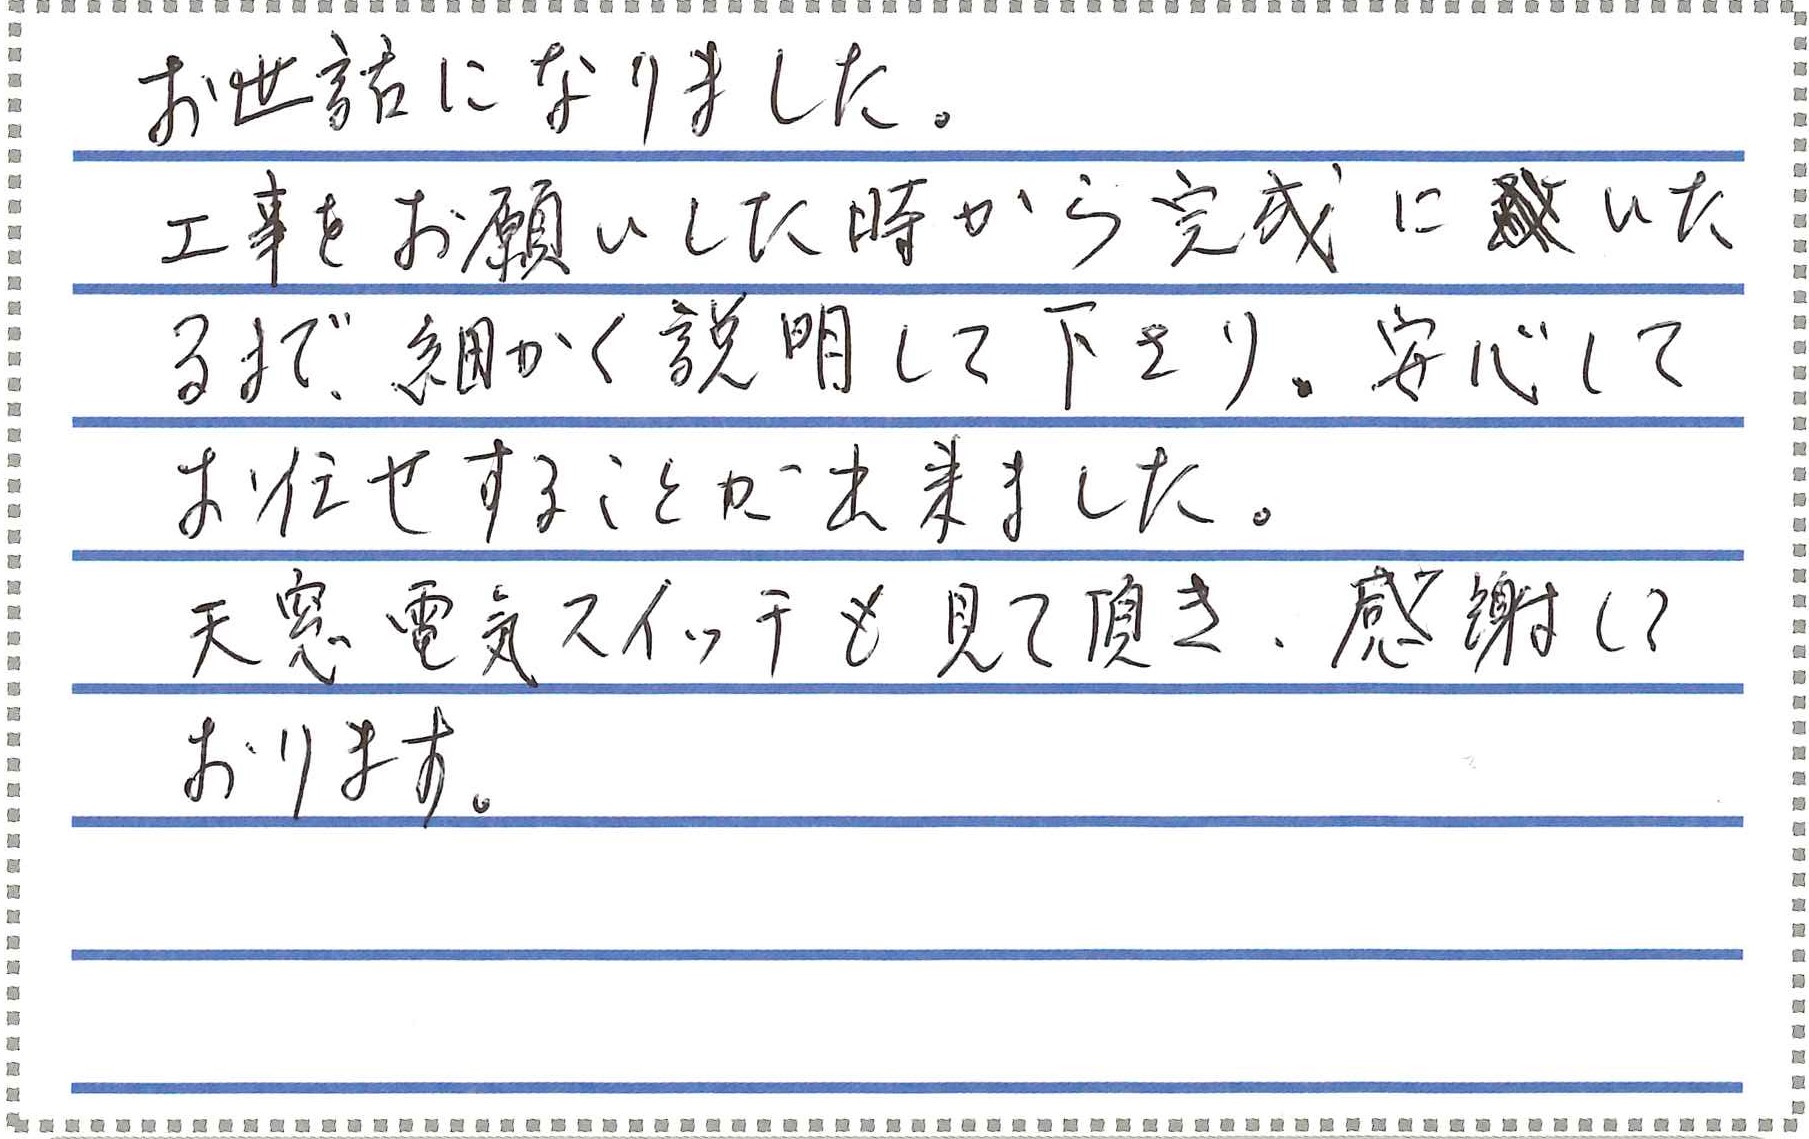 お世話になりました。
工事をお願いした時から完成にいた
るまで、細かく説明して下さり。安心して
お任せすることが出来ました。
天窓電気スイッチも見て頂き、感謝して
おります。